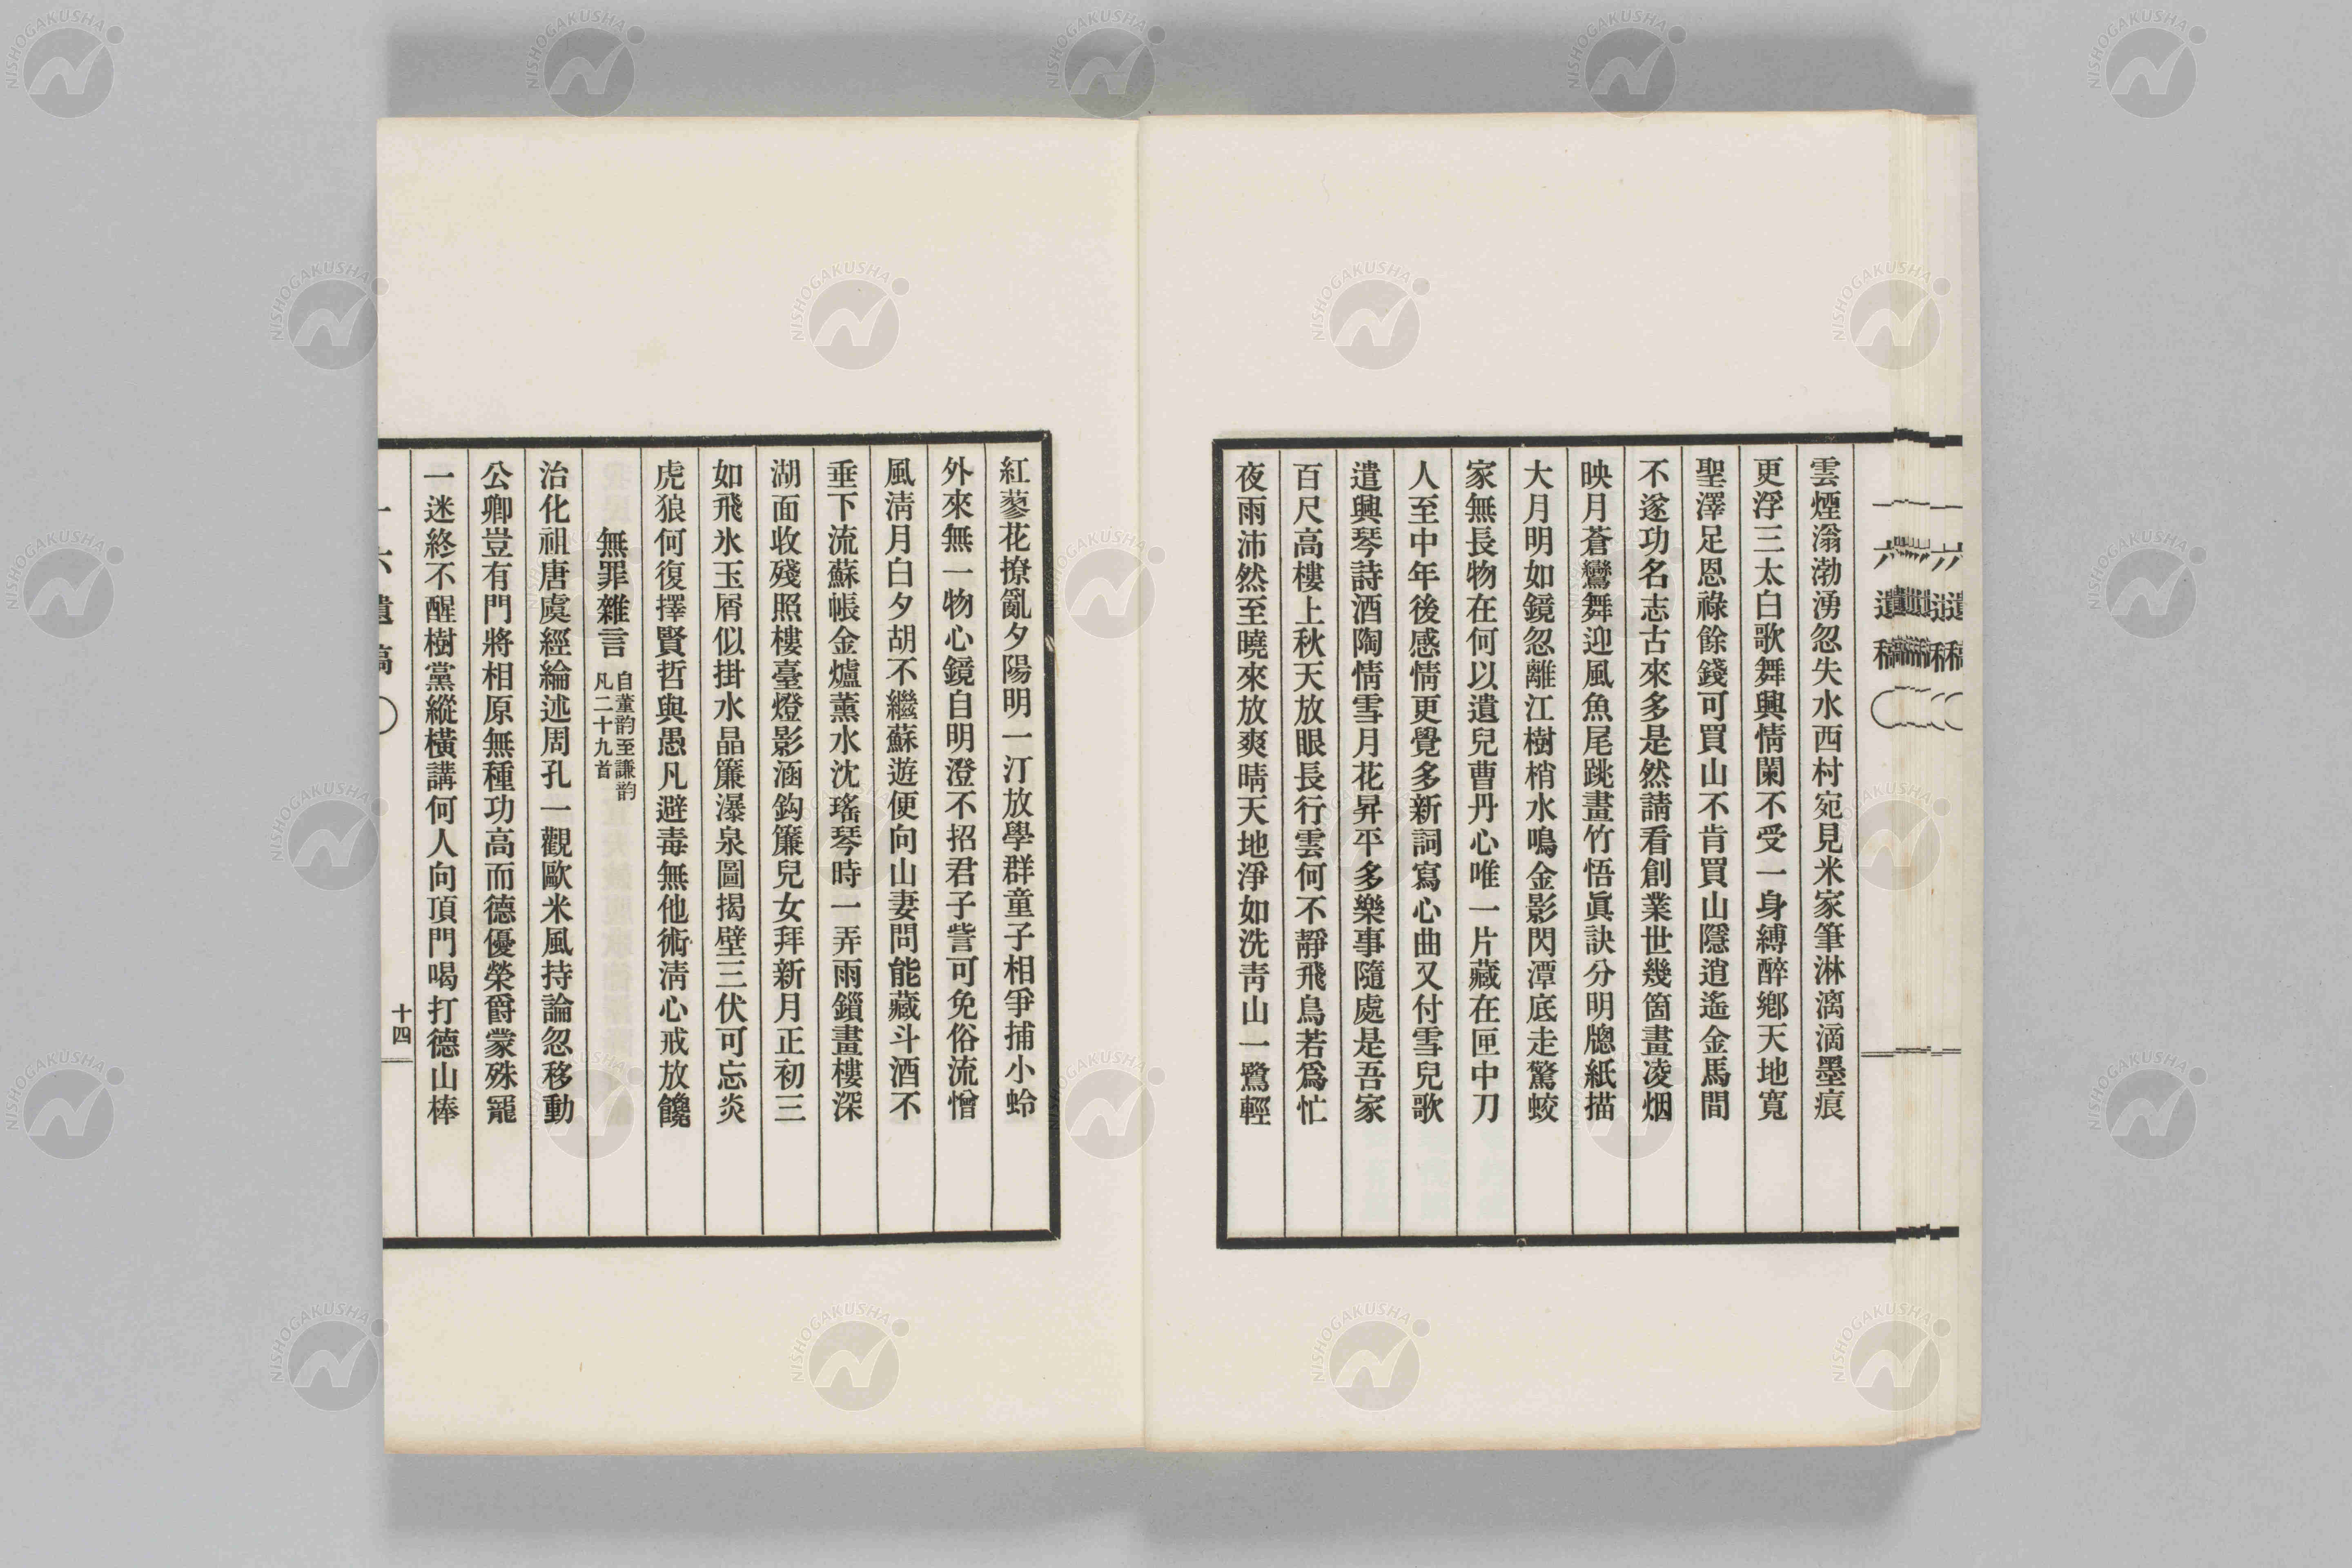 雲煙滃渤湧忽失水西村宛見米家筆淋漓滴墨痕
更浮三太白歌舞興情闌不受一身縛醉鄉天地寬
聖澤足恩祿餘錢可買山不肯買山隱逍遙金馬間
不遂功名志古來多是然請看創業世幾箇畫凌烟
映月蒼鸞舞迎風魚尾跳畫竹悟眞訣分明牕紙描
大月明如鏡忽離江樹梢水鳴金影閃潭底走驚蛟
家無長物在何以遺兒曹丹心唯一片藏在匣中刀
人至中年後感情更覺多新詞寫心曲又付雪兒歌
遣興琴詩酒陶情雪月花昇平多樂事隨處是吾家
百尺高樓上秋天放眼長行雲何不靜飛鳥若爲忙
夜雨沛然至曉來放爽晴天地淨如洗靑山一鷺輕
紅蓼花撩亂夕陽明一汀放學群童子相爭捕小蛉
外來無一物心鏡自明澄不招君子訾可免俗流憎
風淸月白夕胡不繼蘇遊便向山妻問能藏斗酒不
垂下流蘇帳金爐薰水沈瑤琴時一弄雨鎖畫樓深
湖面收殘照樓臺燈影涵鈎簾兒女拜新月正初三
如飛氷玉屑似掛水晶簾瀑泉圖揭壁三伏可忘炎
虎狼何復擇賢哲與愚凡避毒無他術淸心戒放饞
無罪雜言 自董韵至謙韵
凡二十九首
治化祖唐虞經綸述周孔一觀歐米風持論忽移動
公卿豈有門將相原無種功高而德優榮爵蒙殊寵
一迷終不醒樹黨縱橫講何人向頂門喝打德山棒
十四
一六遺稿